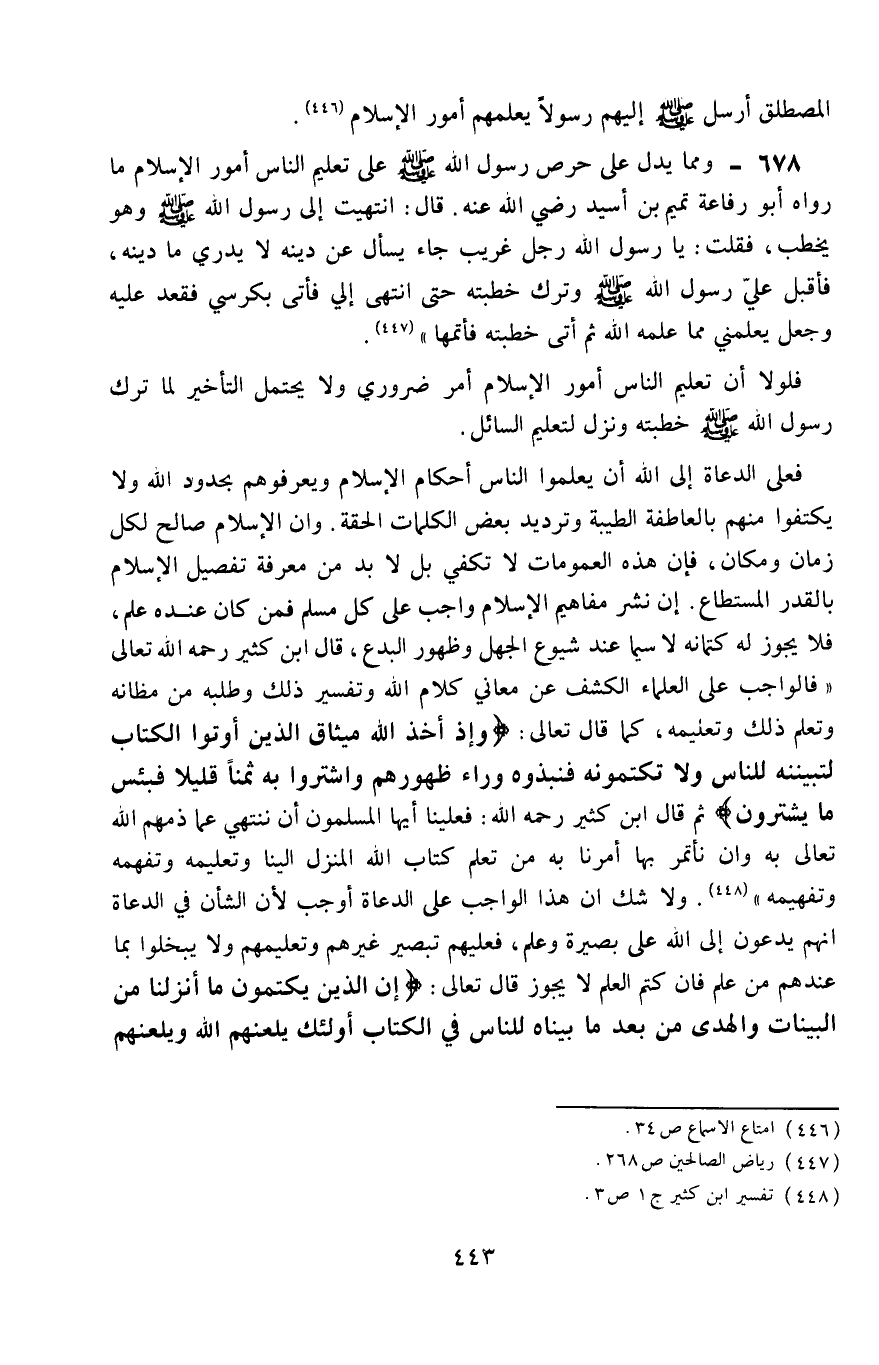 المصطلق أرسل ﷺ إليهم رسولاً يعلمهم أمور الإسلام (٤٤٦) .
٦٧٨ ـ ومما يدل على حرص رسول الله ﷺ على تعليم الناس أمور الإسلام ما
رواه أبو رفاعة تميم بن أسيد رضي الله عنه. قال: انتهيت إلى رسول الله ﷺ وهو
يخطب، فقلت: يا رسول الله رجل غريب جاء يسأل عن دينه لا يدري ما دينه،
فأقبل عليّ رسول الله ﷺ وترك خطبته حتى انتهى إلي فأتى بكرسي فقعد عليه
وجعل يعلمني مما علمه الله ثم أتى خطبته فأتمها » (٤٤٧) .
فلولا أن تعليم الناس أمور الإسلام أمر ضروري ولا يحتمل التأخير لما ترك
رسول الله ﷺ خطبته ونزل لتعليم السائل.
فعلى الدعاة إلى الله أن يعلموا الناس أحكام الإسلام ويعرفوهم بحدود الله ولا
يكتفوا منهم بالعاطفة الطيبة وترديد بعض الكلمات الحقة. وان الإسلام صالح لكل
زمان ومكان، فإن هذه العمومات لا تكفي بل لا بد من معرفة تفصيل الإسلام
بالقدر المستطاع. إن نشر مفاهيم الإسلام واجب على كل مسلم فمن كان عنده علم،
فلا يجوز له كتمانه لا سيما عند شيوع الجهل وظهور البدع، قال ابن كثير رحمه الله تعالى
« فالواجب على العلماء الكشف عن معاني كلام الله وتفسير ذلك وطلبه من مظانه
وتعلم ذلك وتعليمه، كما قال تعالى: ﴿وإذ أخذ الله ميثاق الذين أوتوا الكتاب
لتبيننه للناس ولا تكتمونه فنبذوه وراء ظهورهم واشتروا به ثمناً قليلا فبئس
ما يشترون﴾ ثم قال ابن كثير رحمه الله: فعلينا أيها المسلمون أن ننتهي عما ذمهم الله
تعالى به وان نأتمر بها أمرنا به من تعلم كتاب الله المنزل الينا وتعليمه وتفهمه
وتفهيمه » (٤٤٨) . ولا شك ان هذا الواجب على الدعاة أوجب لأن الشأن في الدعاة
انهم يدعون إلى الله على بصيرة وعلم، فعليهم تبصير غيرهم وتعليمهم ولا يبخلوا بما
عندهم من علم فان كتم العلم لا يجوز قال تعالى: ﴿إن الذين يكتمون ما أنزلنا من
البينات والهدى من بعد ما بيناه للناس في الكتاب أولئك يلعنهم الله ويلعنهم
(٤٤٦) امتاع الاسماع ص ٣٤.
(٤٤٧) رياض الصالحين ص ٢٦٨.
(٤٤٨) تفسير ابن كثير ج ١ ص ٣.
٤٤٣